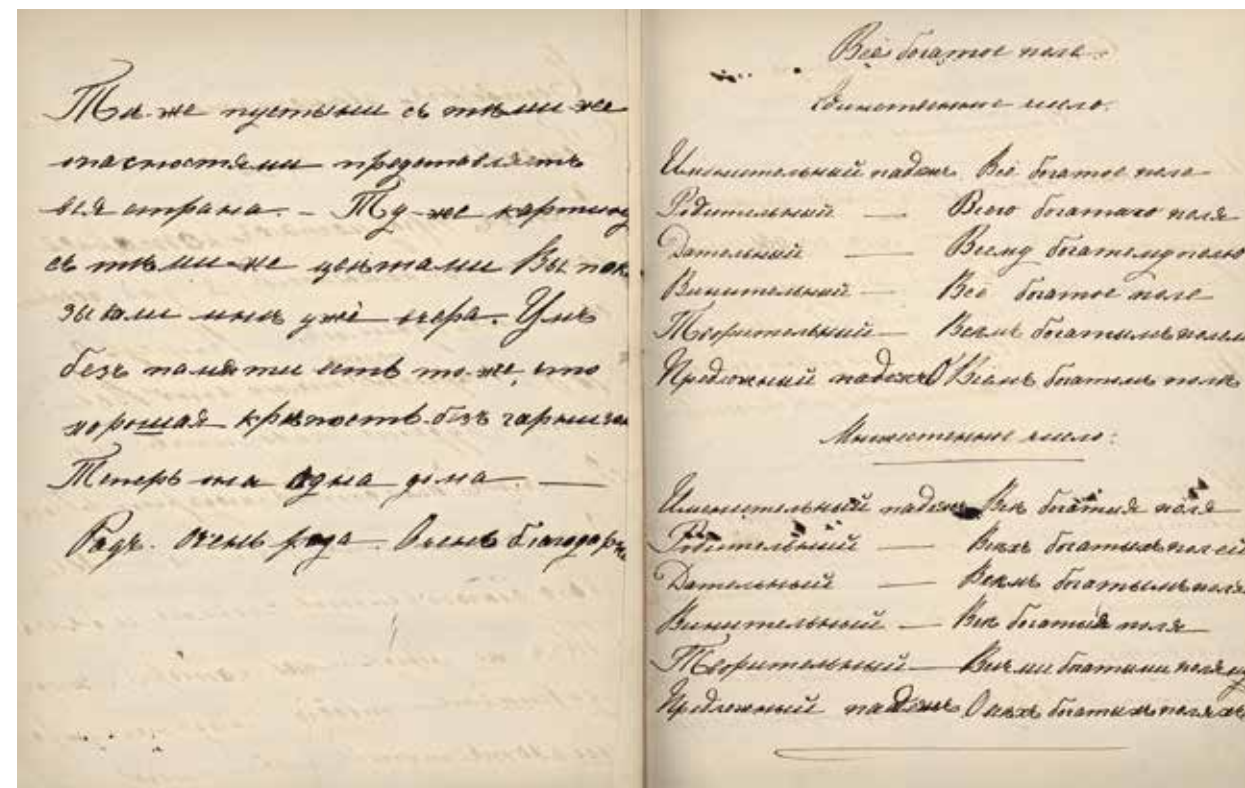 Та-же пустыни съ тѣми же
опасностями представляетъ
вся страна. – Ту-же картину
съ тѣми-же цвѣтами Вы пока
зывали мнѣ уже вчера. Умъ
безъ памяти есть то-же, что
хорошая крѣпость безъ гарнизон
Теперь она одна дома. —
Радъ. Очень рада. Очень благодарн
Всё богатое поле.
Единственное число.
Именительный падежъ Всё богатое поле
Родительный — Всего богатаго поля
Дательный — Всему богатому полю
Винительный — Всё богатое поле
Творительный — Всѣмъ богатымъ полемъ
Предложный падежъ О Всёмъ богатомъ полѣ
Множественное число:
Именительный падежъ Всѣ богатыя поля
Родительный — Всѣхъ богатыхъ полей
Дательный — Всѣмъ богатымъ поля
Винительный — Всѣ богатыя поля
Творительный — Всѣми богатыми полями
Предложный падежъ О всѣхъ богатыхъ поляхъ